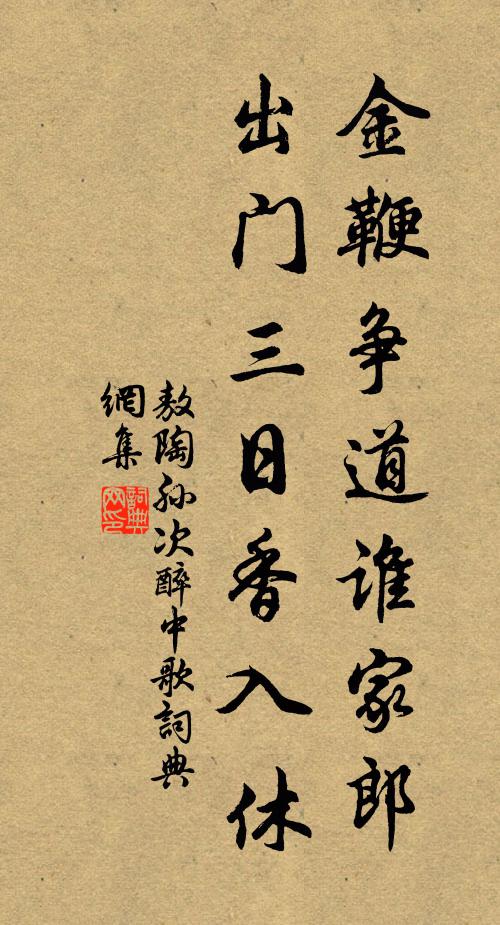 金鞭争道谁家郎
出门三日香入休
敖陶孙次醉中歌詞典
網集
詞典
网印